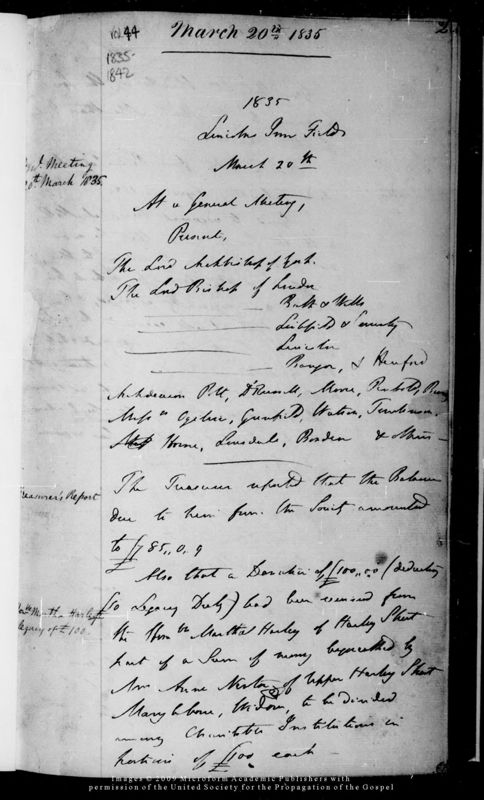 Vol. 44
1835-
1842
March 20th 1835
1835
Lincolns Inn Fields
March 20th
Meeting
March 1835
At a General Meeting,
Present,
The Lord Archbishop of York.
The Lord Bishop of London
Bath & Wells
Lichfield & Coventry
Lincoln
Bangor, & Hereford
Archdeacon Pott, Dr Russell, Moore,
Messrs Ogilvie, Greenfield, Watson, Tomlinson.
Horne, Lonsdale, Bowdon & others
Treasurer's Report
The Treasurer reported that the Balance
due to him from the Society amounted
to £785,,0,,9
Also that a Donation of £100,,0,,0 (deducting
Legacy Duty) had been received from
Martha Harley
legacy of £100.
the Honble Martha Harley of Harley Street
part of a Sum of money bequeathed by
Mrs Anne of Upper Harley Street
Marylebone, Widow, to be divided
among Charitable Institutions in
portions of £100 each
Images © 2009 Microform Academic Publishers with
permission of the United Society for the Propagation of the Gospel